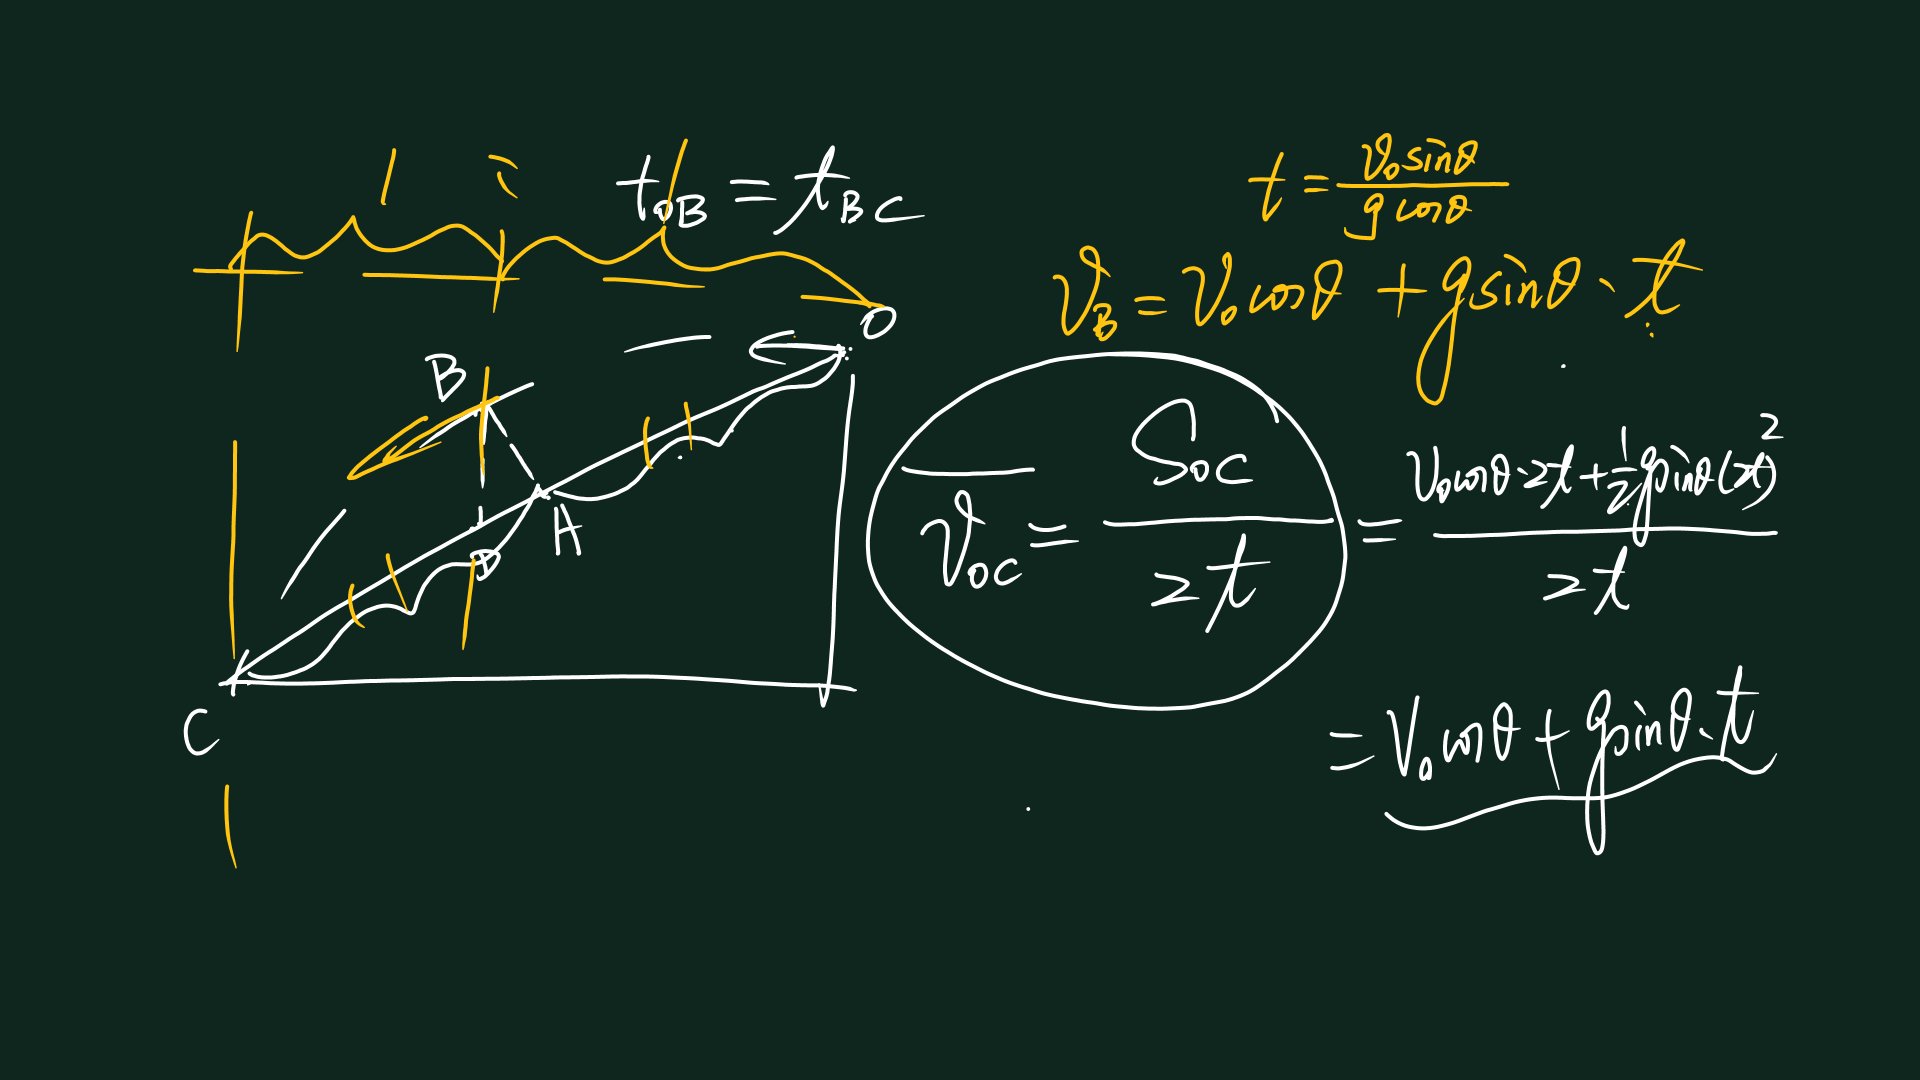 t_{OB} = t_{BC}
t = \frac{v_0 sinθ}{g cosθ}
v_B = v_0 cosθ + g sinθ · t
O
B
A
D
C
\overline{v_{OC}} = \frac{S_{OC}}{2t} = \frac{v_0 cosθ · 2t + \frac{1}{2} g sinθ (2t)^2}{2t}
= v_0 cosθ + g sinθ · t